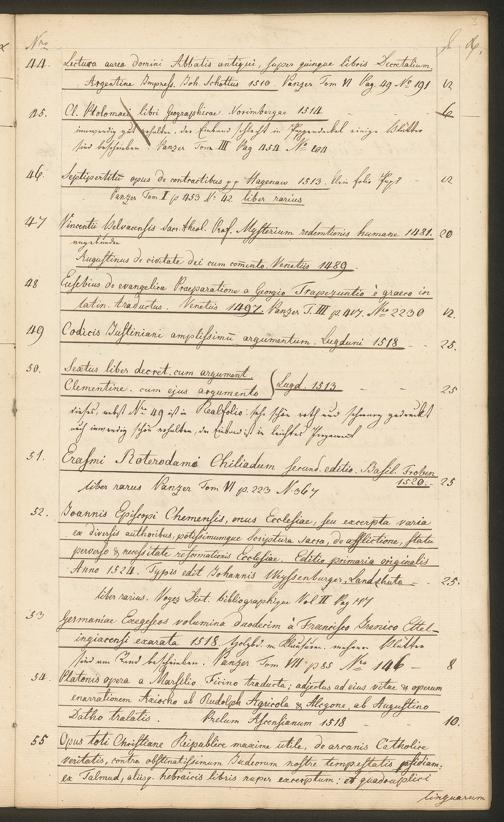 Nro
44. Lectura aurea domini Abbatis antiqui, super quinque libris Decretalium,
Argentine Impress. Joh. Schottus 1510 Panzer Tom VI Pag. 49 No 191
45. Cl. Ptolomaei libri Geographicae. Norimbergae 1514 6
Panzer Tom III Pag 454 No
46. Septipertitum opus de contractibus Hagenaw 1513. klein folio
Panzer Tom I p 453 N: 42. liber rarius
47 Vincentii Belvacensis San. theol. Prof. Mysterium redemtionis humane 1481. 20
angebunden
Augustinus de civitate dei cum comento. Venetiis 1489
48 Eusebius de evangelica Praeparatione a Georgio Trapezuntio è graeco in
latin. traductus. Venetiis 1497. Panzer T. III p. 417. No 2230
49 Codicis Justiniani amplissimu argumentum. Lugduni 1518 - - 25.
50. Sextus liber decret. cum argument.
Clementine. cum ejus argumento } Lugd. 1513 - - 25
dieses nebst No 49 ist in Realfolio sehr schön roth und schwarz gedruckt
51. Erasmi Roterodami Chiliadum secund. editio. Basil. Froben
1520. - 25
liber rarus Panzer Tom VI p. 223 N 367
52. Joannis Episcopi Chemensis, onus Ecclesiae, seu excerpta varia
ex diversis authoribus, potissimumque Scriptura Sacra, de afflictione, statu
perverso & necessitate reformationis Ecclesiae. Editio primaria originalis
Anno 1524. Typis edit Johannis Weyssenburger, Landshuta - - 25.
liber rarius. Voyez Dict. bibliographique Vol. II Pag 117
53 Germaniae Exegeseos volumina duodecim à Francisco Irenico Ettel-
ingiacensi exarata 1518.
Panzer Tom VII p 85 No 146 - 8
54 Platonis opera a Marsilio Ficino traducta; adjectus ad eius vitae & operum
enarrationem Axiocho ab Rudolph Agricola & Alcyone, ab Augustino
Datho tralatis. Prelum Ascensianum 1518 - - 10.
55 Opus toti Christiane Reipublice maxime utile, de arcanis Catholice
veritatis, contra obstinatissimum Judeorum nostre tempestatis psidiam:
ex Talmud, aliisq. hebraicis libris nuper excerptum: et quadruplici
linguarum